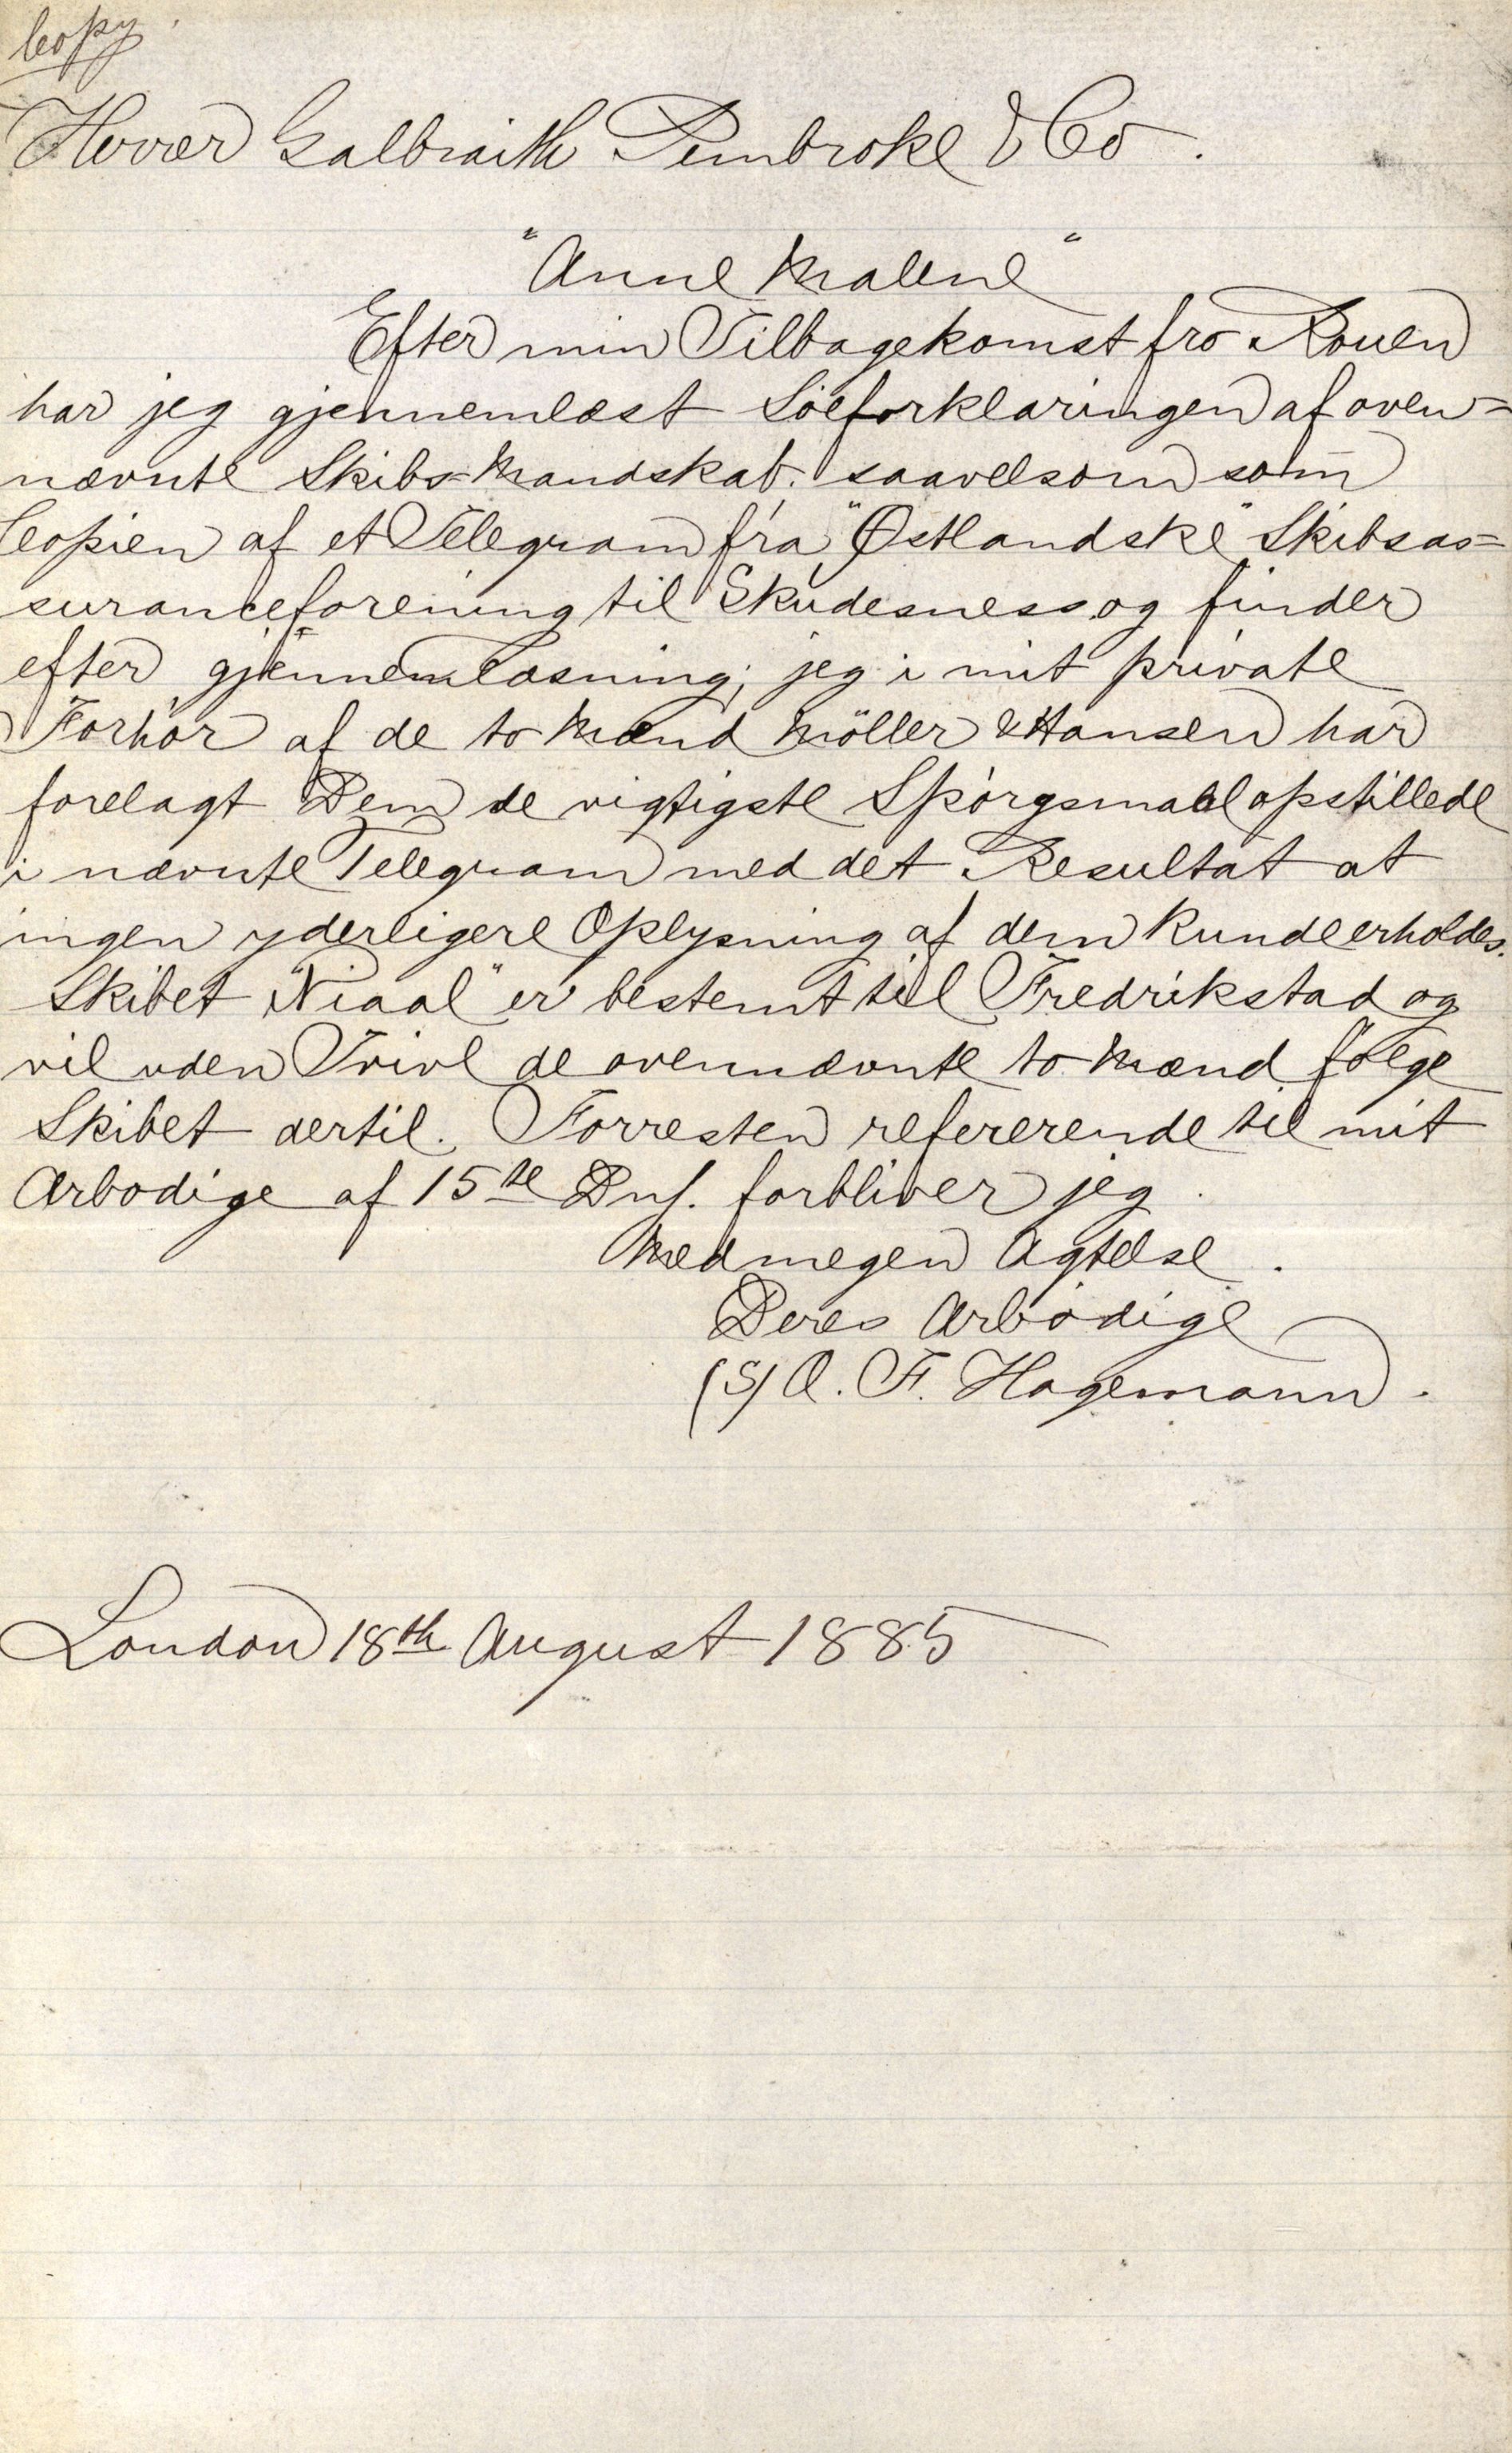 Copy.
Herrer Galbraith Pembroke & Co.
"Anne Malene"
Efter min Tilbagekomst fra Rouen
har jeg gjennemlæst Söeforklaringen af oven=
nævnte Skibs=Mandskab. saavelsom som
Copien af et Telegram fra "Østlandske" Skibsas=
suranceforening til Skudesness og finder
efter gjennemlæsning; jeg i mit private
Forhör af de to Mænd Möller & Hansen har
forelagt Dem de vigtigste Spörgsmaal opstillede
i nævnte Telegram med det Resultat at
ingen yderligere Oplysning af dem kunde erholdes.
Skibet "Niaal" er bestemt til Fredrikstad og
vil uden Tvivl de ovennævnte to Mænd fölge
Skibet dertil. Forresten refererende til mit
Ærbodige af 15te Ds. forbliver jeg.
Med megen Agtelse.
Deres Ærbödige
(s) O. F. Hagemann.
London 18th August 1885